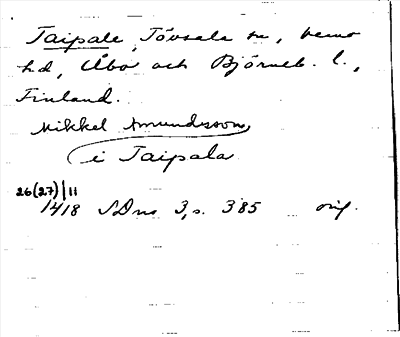 Taipale, Tövsala sn, Vemo
hd, Åbo och Björneb. l.,
Finland.
Mikkel Amundsson
i Taipala
26(27)/11
1418 SDns 3, s. 385 orig.